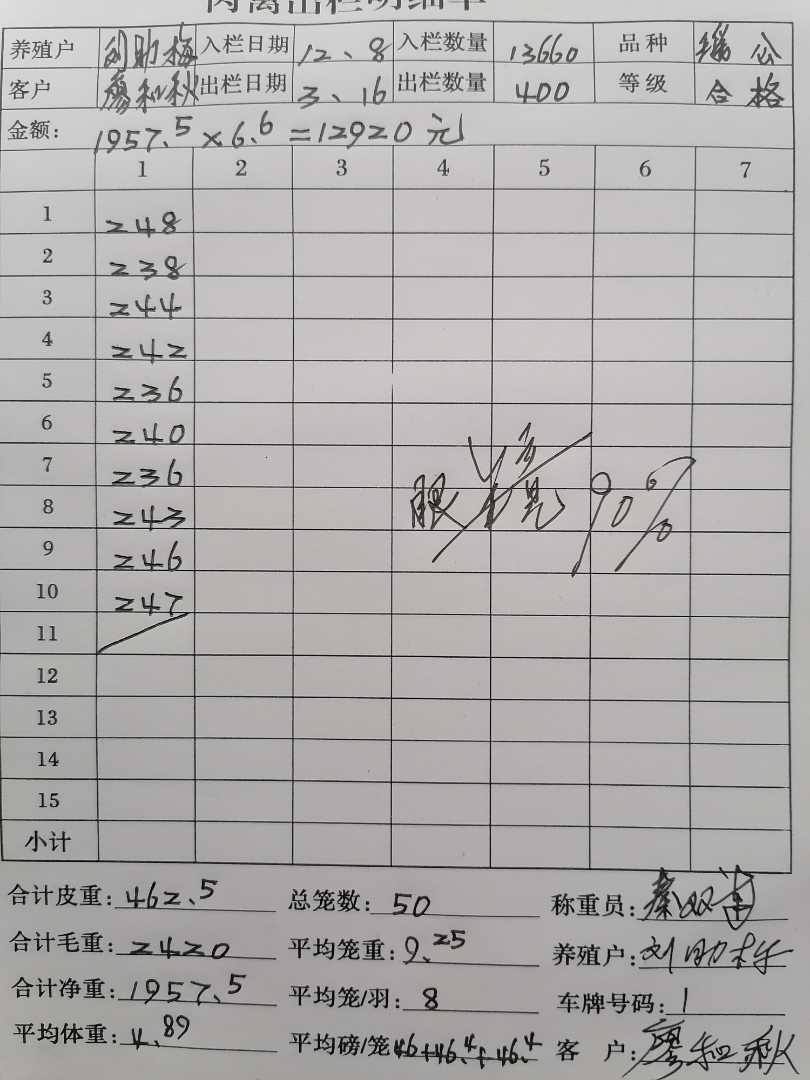 肉禽出栏明细单
养殖户 刘助梅 入栏日期 12、8 入栏数量 13660 品种 瑶公
客户 廖和秋 出栏日期 3、16 出栏数量 400 等级 合格
金额: 1957.5×6.6=12920元
1 2 3 4 5 6 7
1 248
2 238
3 244
4 242
5 236
6 240
7 236
8 243
9 246
10 247
11
12
13
14
15
小计
90%
合计皮重: 462.5 总笼数: 50 称重员: 秦双
合计毛重: 2420 平均笼重: 9.25 养殖户: 刘助梅
合计净重: 1957.5 平均笼/羽: 8 车牌号码: 1
平均体重: 4.89 平均磅/笼 46+46.4+46.4 客 户: 廖和秋